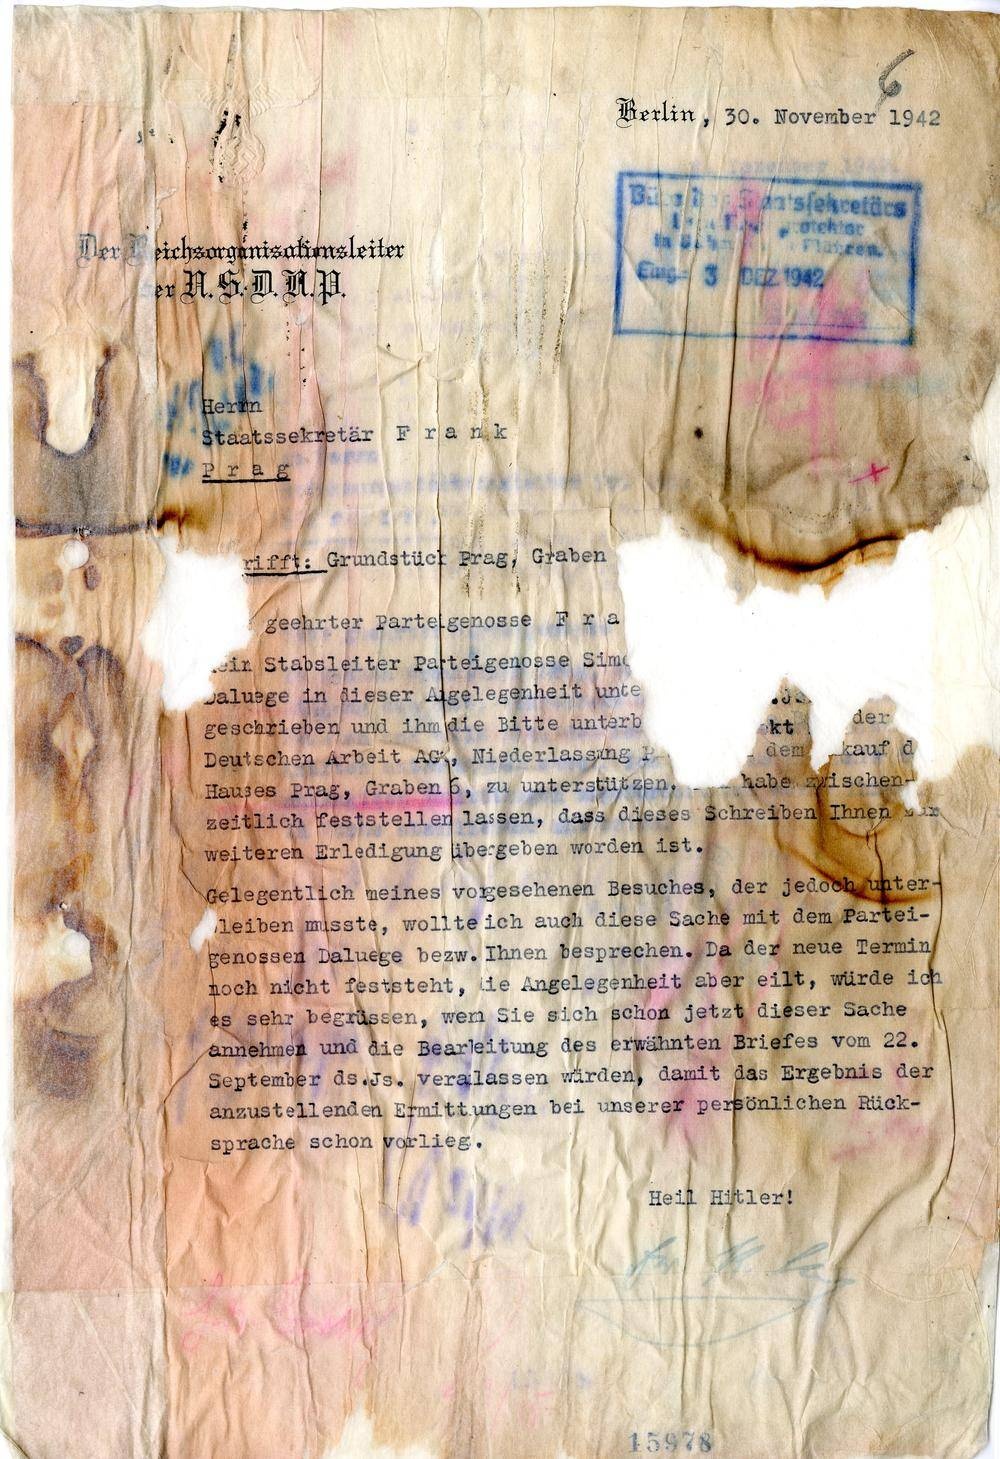 6
Berlin, 30. November 1942
Der Reichsorganisationsleiter
der N.S.D.A.P.
Staatssekretärs
in
Eing. 3 DEZ 1942
Herrn
Staatssekretär F r a n k
P r a g
rifft: Grundstück Prag, Graben
geehrter Parteigenosse F r a
ein Stabsleiter Parteigenosse Simo
Daluege in dieser Angelegenheit unte
geschrieben und ihm die Bitte unterb ekt der
Deutschen Arbeit AG., Niederlassung P dem kauf d
Hauses Prag, Graben 6, zu unterstützen. habe zwischen-
zeitlich feststellen lassen, dass dieses Schreiben Ihnen zur
weiteren Erledigung übergeben worden ist.
Gelegentlich meines vorgesehenen Besuches, der jedoch unter-
bleiben musste, wollte ich auch diese Sache mit dem Partei-
genossen Daluege bezw. Ihnen besprechen. Da der neue Termin
noch nicht feststeht, die Angelegenheit aber eilt, würde ich
es sehr begrüssen, wenn Sie sich schon jetzt dieser Sache
annehmen und die Bearbeitung des erwähnten Briefes vom 22.
September ds.Js. veranlassen würden, damit das Ergebnis der
anzustellenden Ermittlungen bei unserer persönlichen Rück-
sprache schon vorlieg.
Heil Hitler!
15978